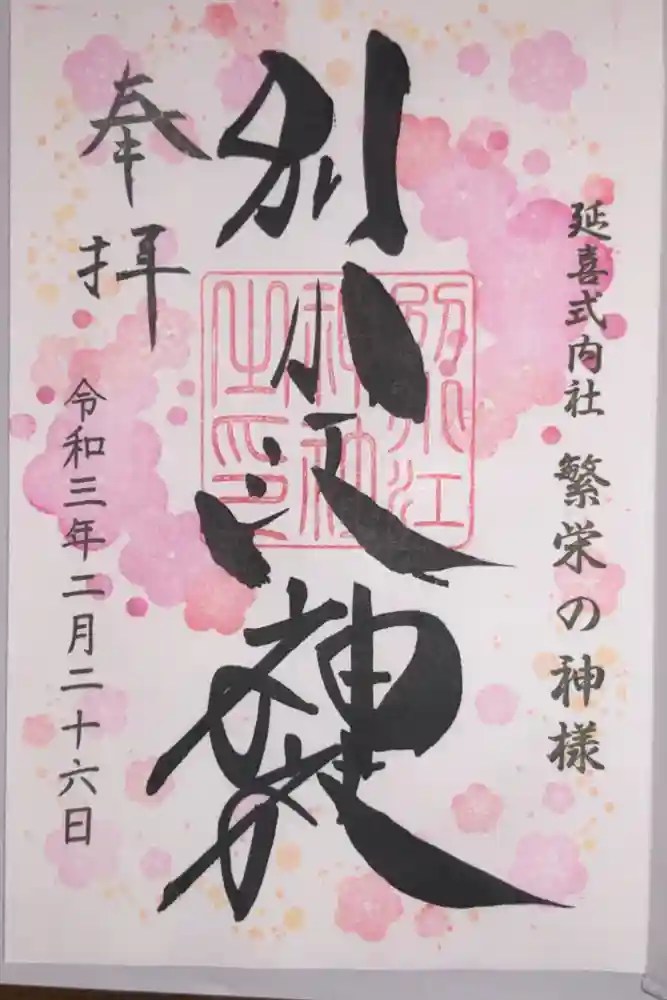 延喜式内社 繁栄の神様
別小江神社
別小江
神社
之印
奉拝
令和三年二月二十六日